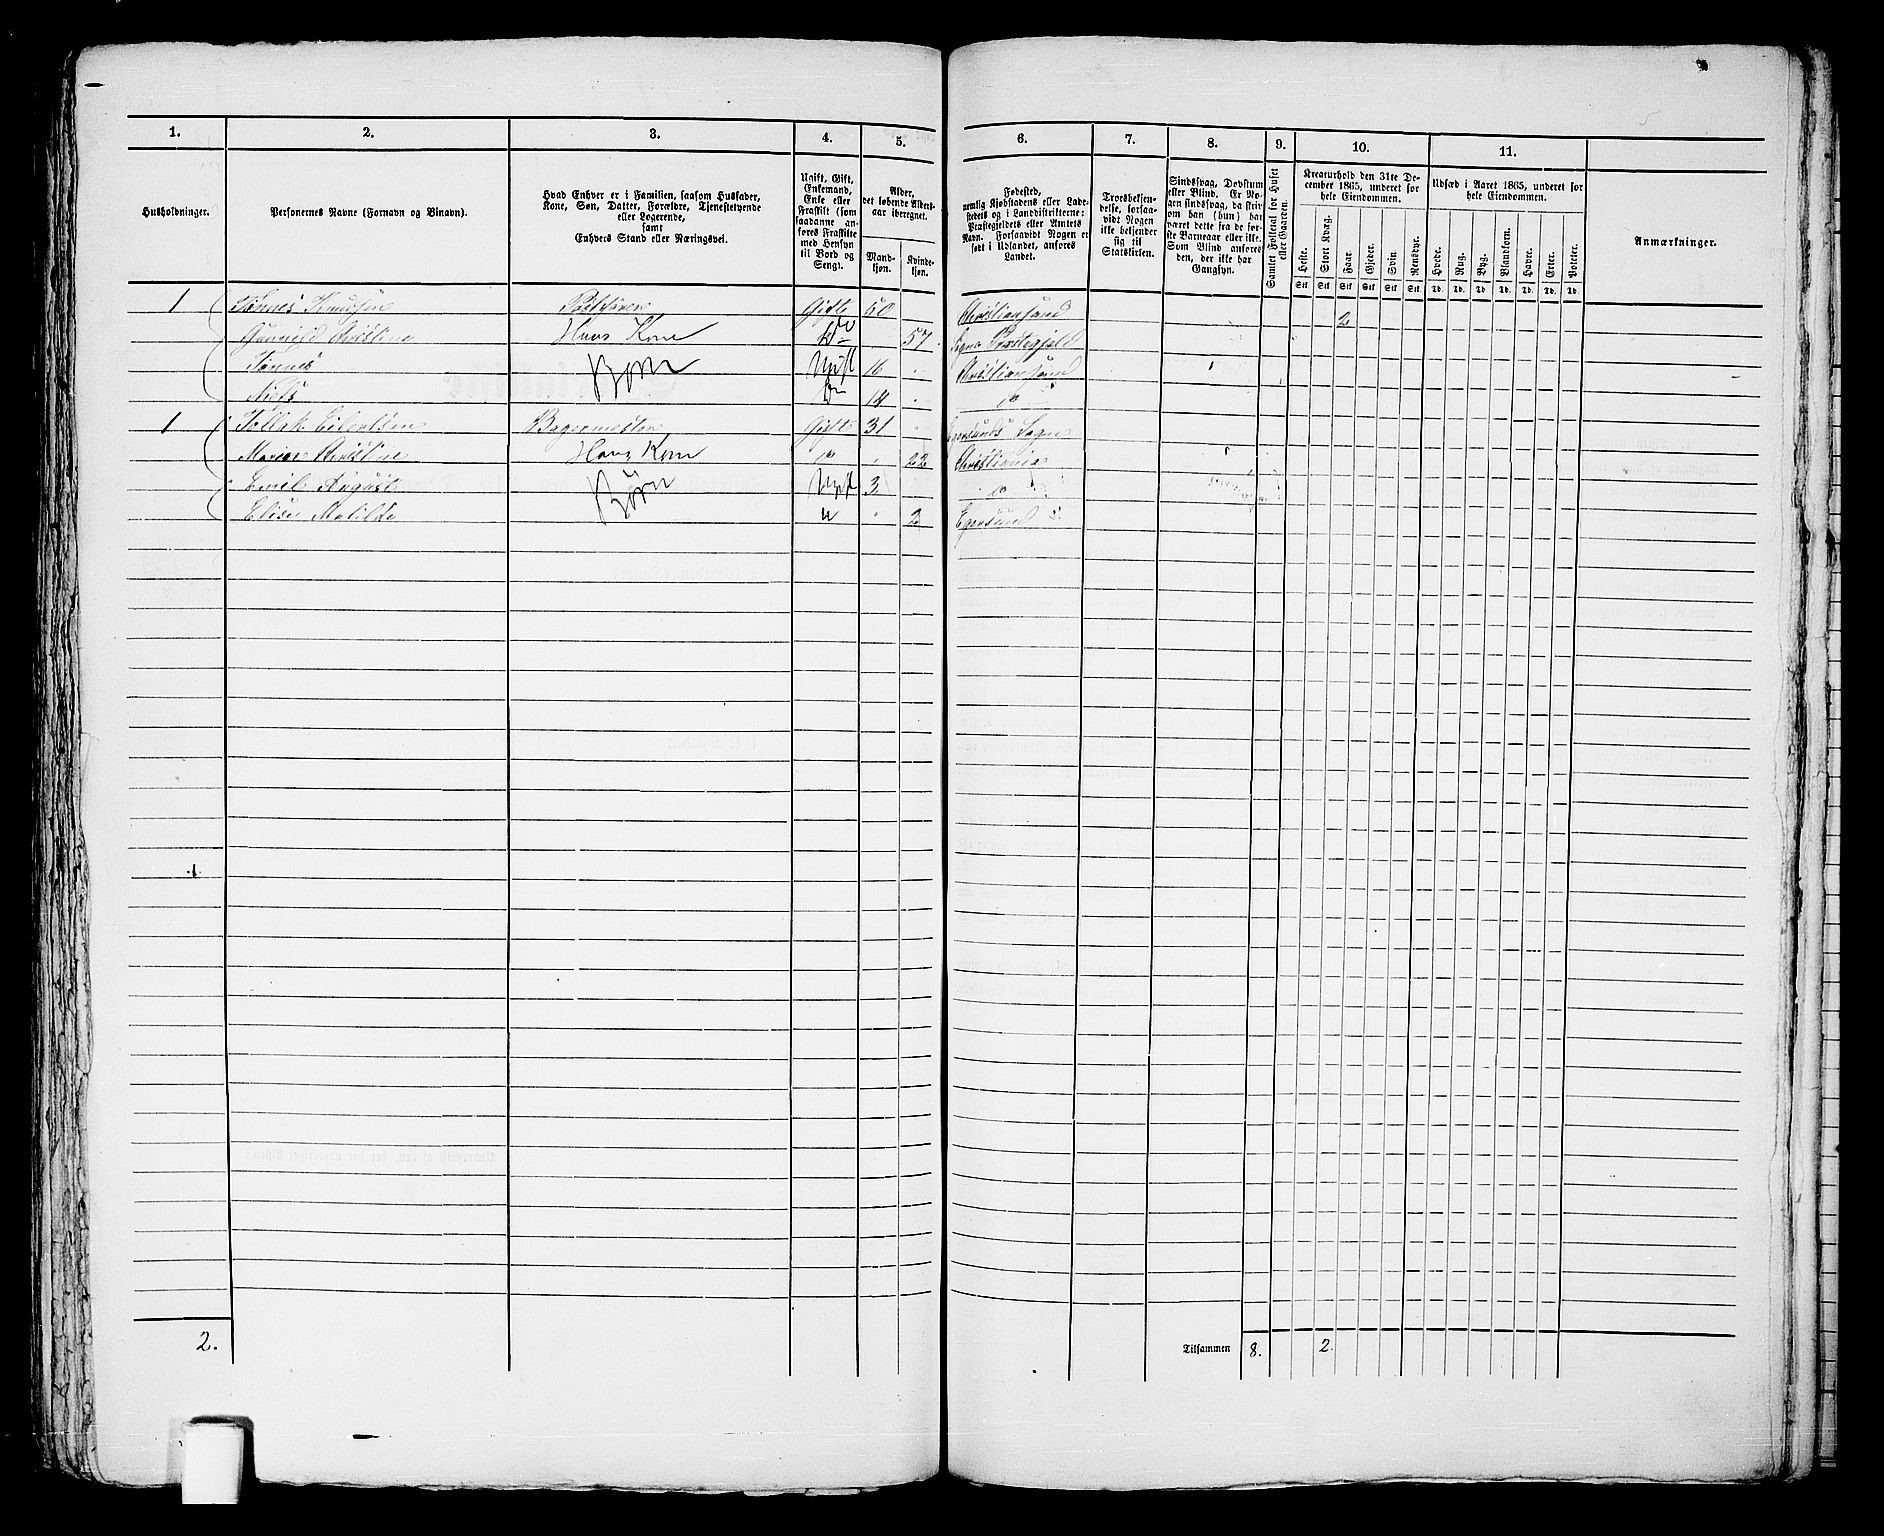 1.
2.
3.
4.
5.
6.
7.
8.
9.
10.
11.
Husholdninger.
Personernes Navne (Fornavn og Binavn).
Hvad Enhver er i Familien, saasom Husfader,
Kone, Søn, Datter, Forældre, Tjenestetyende
eller Logerende,
samt
Enhvers Stand eller Næringsvei.
Ugift, Gift,
Enkemand,
Enke eller
Fraskilt (som
saadanne an-
føres Fraskilte
med Hensyn
til Bord og
Seng).
Alder,
det løbende Alders-
aar iberegnet.
Mand-
kjøn.
Kvinde-
kjøn.
Fødested,
nemlig Kjøbstadens eller Lade-
stedets og i Landdistrikterne:
Præstegjeldets eller Amtets
Navn. Forsaavidt Nogen er
født i Udlandet, anføres
Landet.
Troesbekjen-
delse, forsaa-
vidt Nogen
ikke bekjender
sig til
Statskirken.
Sindssvag, Døvstum
eller Blind. Er No-
gen sindssvag, da skriv
om han (hun) har
været dette fra de før-
ste Barneaar eller ikke.
Som Blind anføres
den, der ikke har
Gangsyn.
Samlet Folketal for Huset
eller Gaarden.
Kreaturhold den 31te De-
cember 1865, underet for
hele Eiendommen.
Heste.
Stort Kvæg.
Faar.
Gjeder.
Svin.
Rensdyr.
Stk Stk Stk Stk Stk Stk
Udsæd i Aaret 1865, underet for
hele Eiendommen.
Hvede.
Rug.
Byg.
Blandkorn.
Havre.
Erter.
Poteter.
Td. Td. Td. Td. Td. Td. Td.
Anmærkninger.
1 Tønnes Knudsen Gifte 50 Christiansand 2
Gunnild Christine Hans Kone Do 57 Sogne Præstegjeld
Tønnes Børn Ugift 16 Christiansand
Niels Do 14 "
1 Tollak Eilertsen Bagermester Gifte 31 Egersunds Sogn
Maren Christine Hans Kone " 22 Christiania
Emil August Børn Ugift 3 "
Elise Matilde " 2 Egersund
2.
Tilsammen 8. 2.